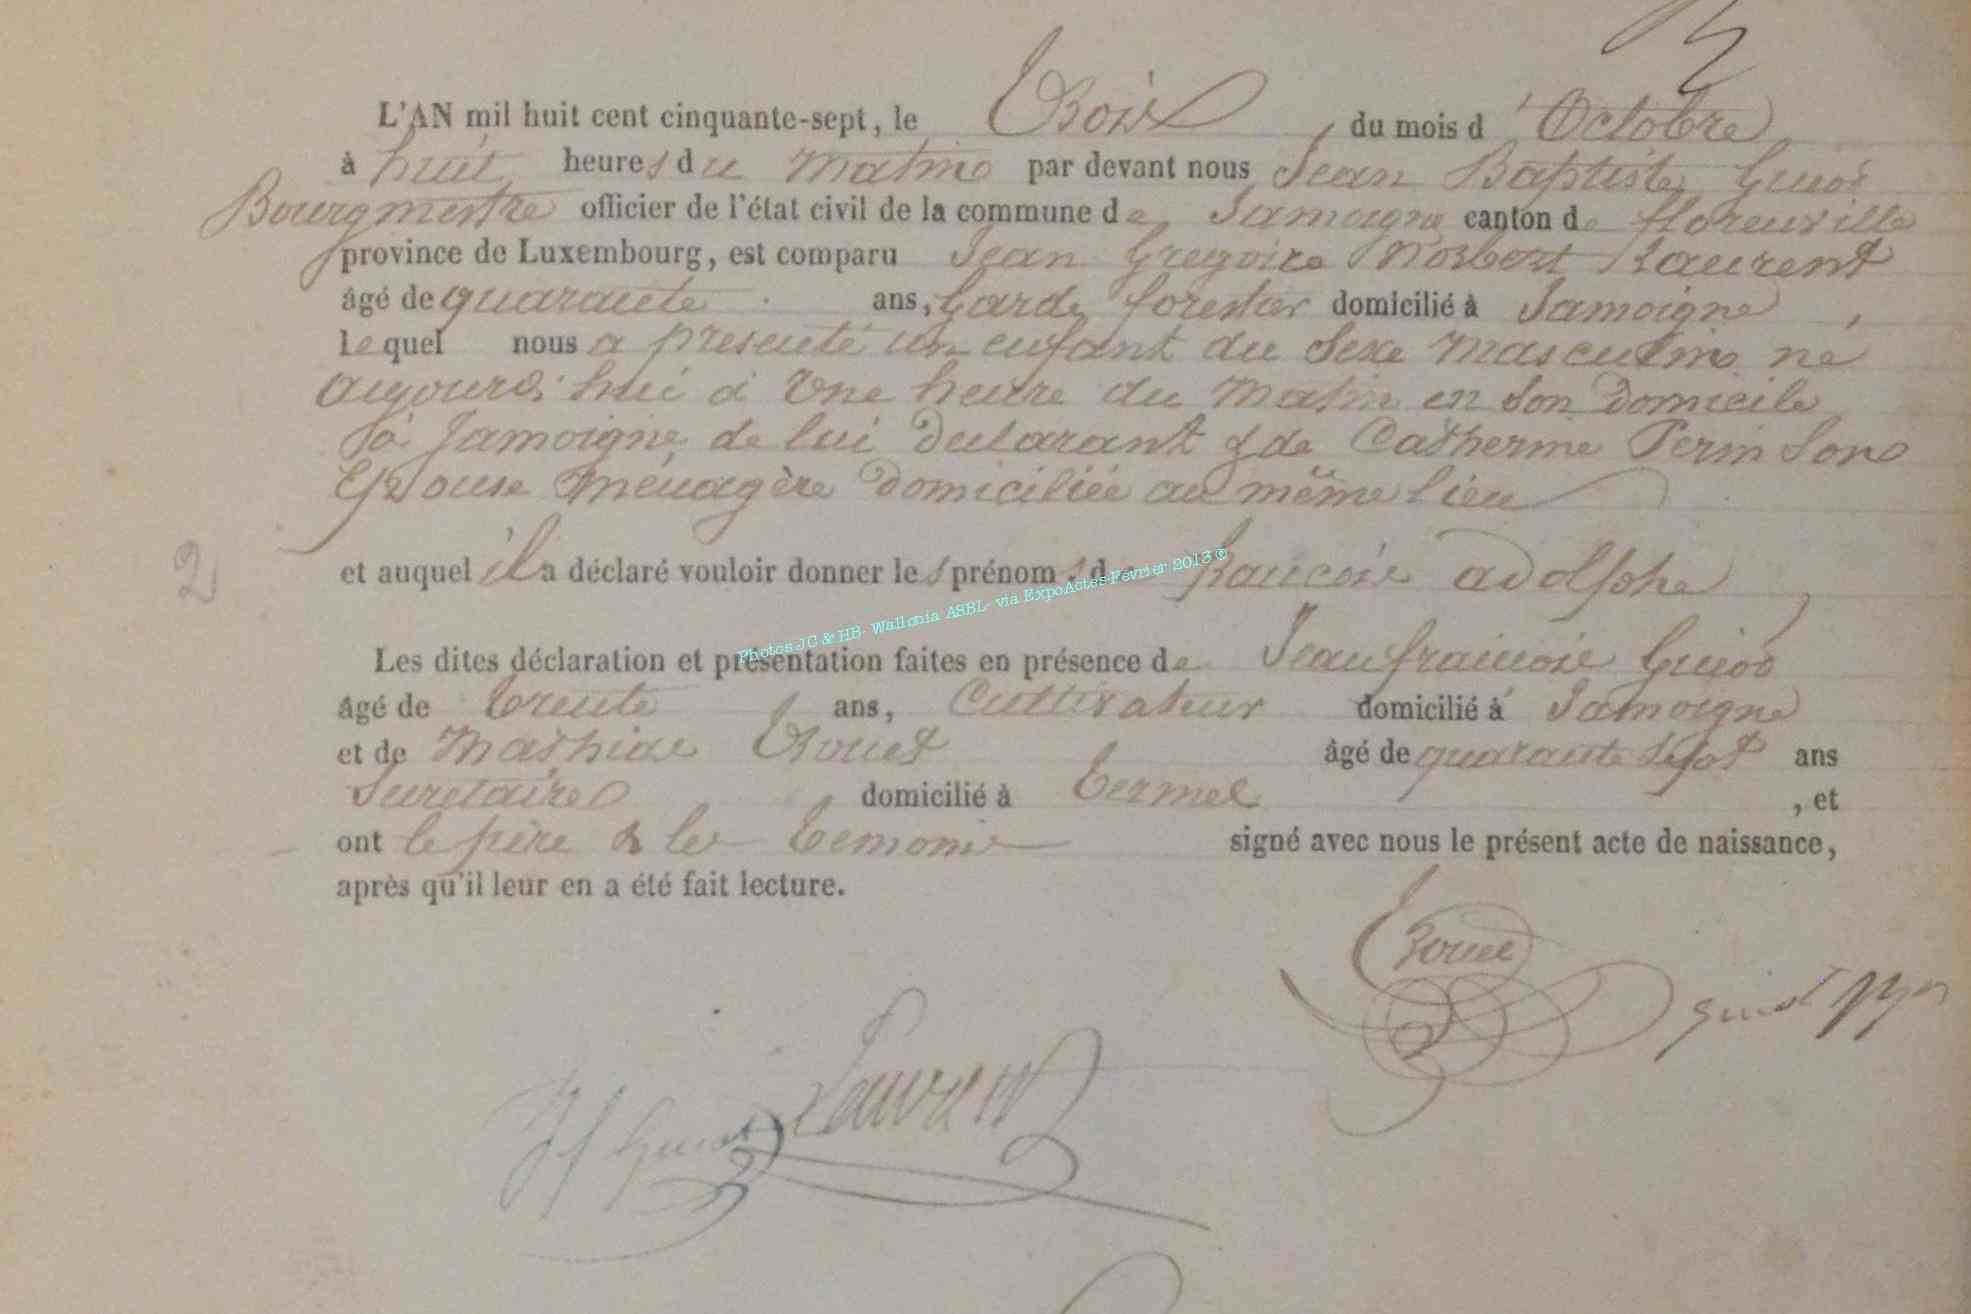 L'AN mil huit cent cinquante-sept, le Trois du mois d'Octobre
à huit heures du matin par devant nous Jean Baptiste Guiot
Bourgmestre officier de l'état civil de la commune de Jamoigne canton de florenville
province de Luxembourg, est comparu Jean Gregoire Norbert Laurent
âgé de quarante ans, Garde forestier domicilié à Jamoigne,
lequel nous a presenté un enfant du Sexe masculin né
aujourd'hui à Une heure du matin en Son Domicile
à Jamoigne, de lui Déclarant & de Catherine Perin Son
Epouse ménagère Domiciliée au même lieu
2
et auquel il a déclaré vouloir donner les prénoms de francois adolphe,
Photos JC & HB- Wallonia ASBL- via ExpoActes-Février 2013 ©
Les dites déclaration et présentation faites en présence de Jean francois Guiot
âgé de trente ans, Cultivateur domicilié à Jamoigne
et de Mathias Trouet âgé de quarante Sept ans
Secretaire domicilié à Termes, et
ont le père & les temoins signé avec nous le présent acte de naissance,
après qu'il leur en a été fait lecture.
Trouet
Guiot
Laurent
Jf Guiot